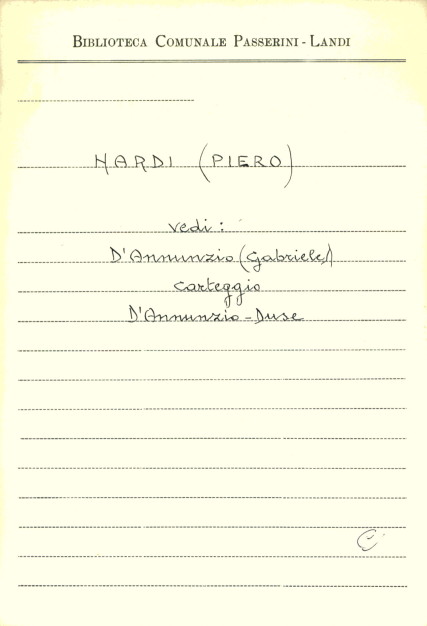 BIBLIOTECA COMUNALE PASSERINI - LANDI
NARDI (PIERO)
vedi :
D'Annunzio (Gabriele)
Carteggio
D'Annunzio - Duse